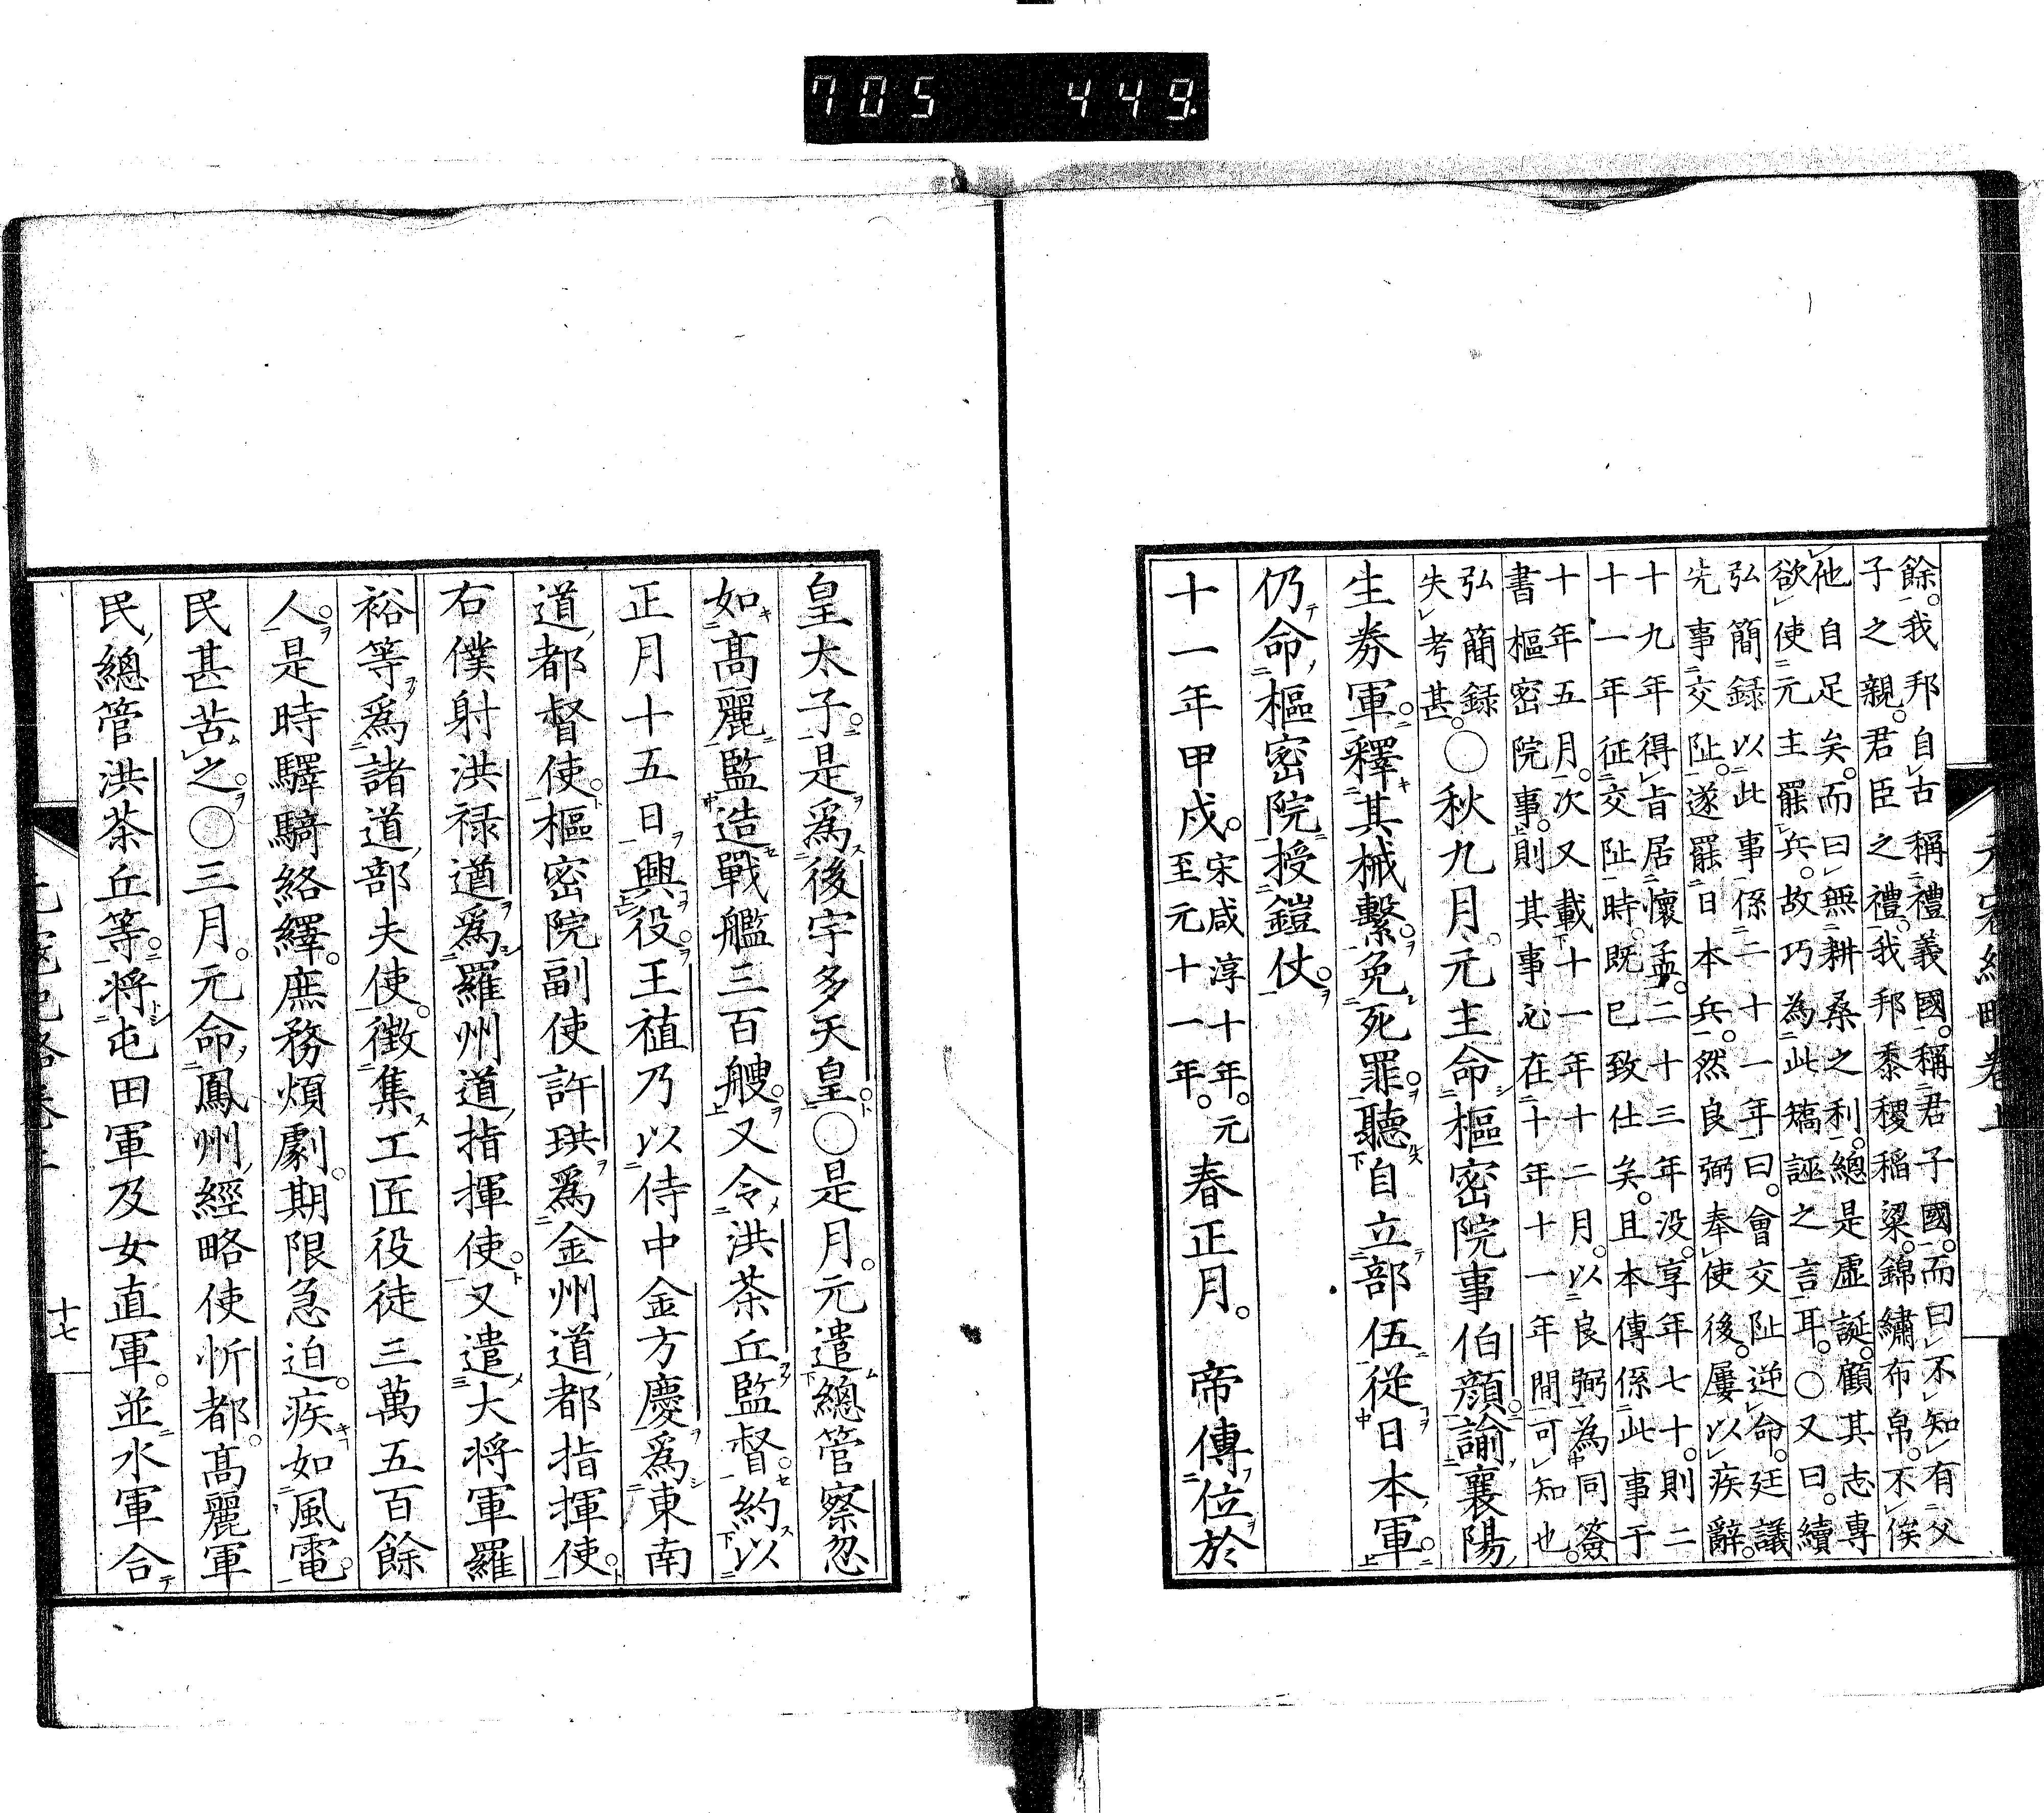 705 449.
餘。我邦自古稱禮義國。稱君子國。而曰不知有父
子之親。君臣之禮。我邦黍稷稲粱。錦繡布帛。不俟
他自足矣。而曰無耕桑之利。總是虛誕。顧其志專
欲使元主罷兵。故巧為此矯誣之言耳。○又曰。續
弘簡録以此事係二十一年曰。會交趾逆命。廷議
先事交趾。遂罷日本兵。然良弼奉使後。屢以疾辭。
十九年得旨居懷孟。二十三年没。享年七十。則二
十一年征交趾時。既已致仕矣。且本傳係此事于
十年五月。次又載十一年十二月。以良弼為同簽
書樞密院事。則其事必在十年十一年間可知也。
弘簡録
失考甚。○秋九月。元主命樞密院事伯顔諭襄陽
生券軍。釋其械繫。免死罪。聽自立部伍。從日本軍。
仍命樞密院。授鎧仗。
十一年甲戌。宋咸淳十年。元至元十一年。春正月。帝傳位於
元寇紀略卷上
皇太子。是爲後宇多天皇。○是月。元遣總管察忽
如高麗。監造戰艦三百艘。又令洪茶丘監督。約以
正月十五日。興役。王植乃以侍中金方慶爲東南
道都督使。樞密院副使許珙爲金州道都指揮使。
右僕射洪禄遒爲羅州道指揮使。又遣大将軍羅
裕等爲諸道部夫使。徴集工匠役徒三萬五百餘
人。是時驛騎絡繹。庶務煩劇。期限急迫。疾如風電。
民甚苦之。○三月。元命鳳州經略使忻都。高麗軍
民總管洪茶丘等。将屯田軍及女直軍。並水軍合
十七